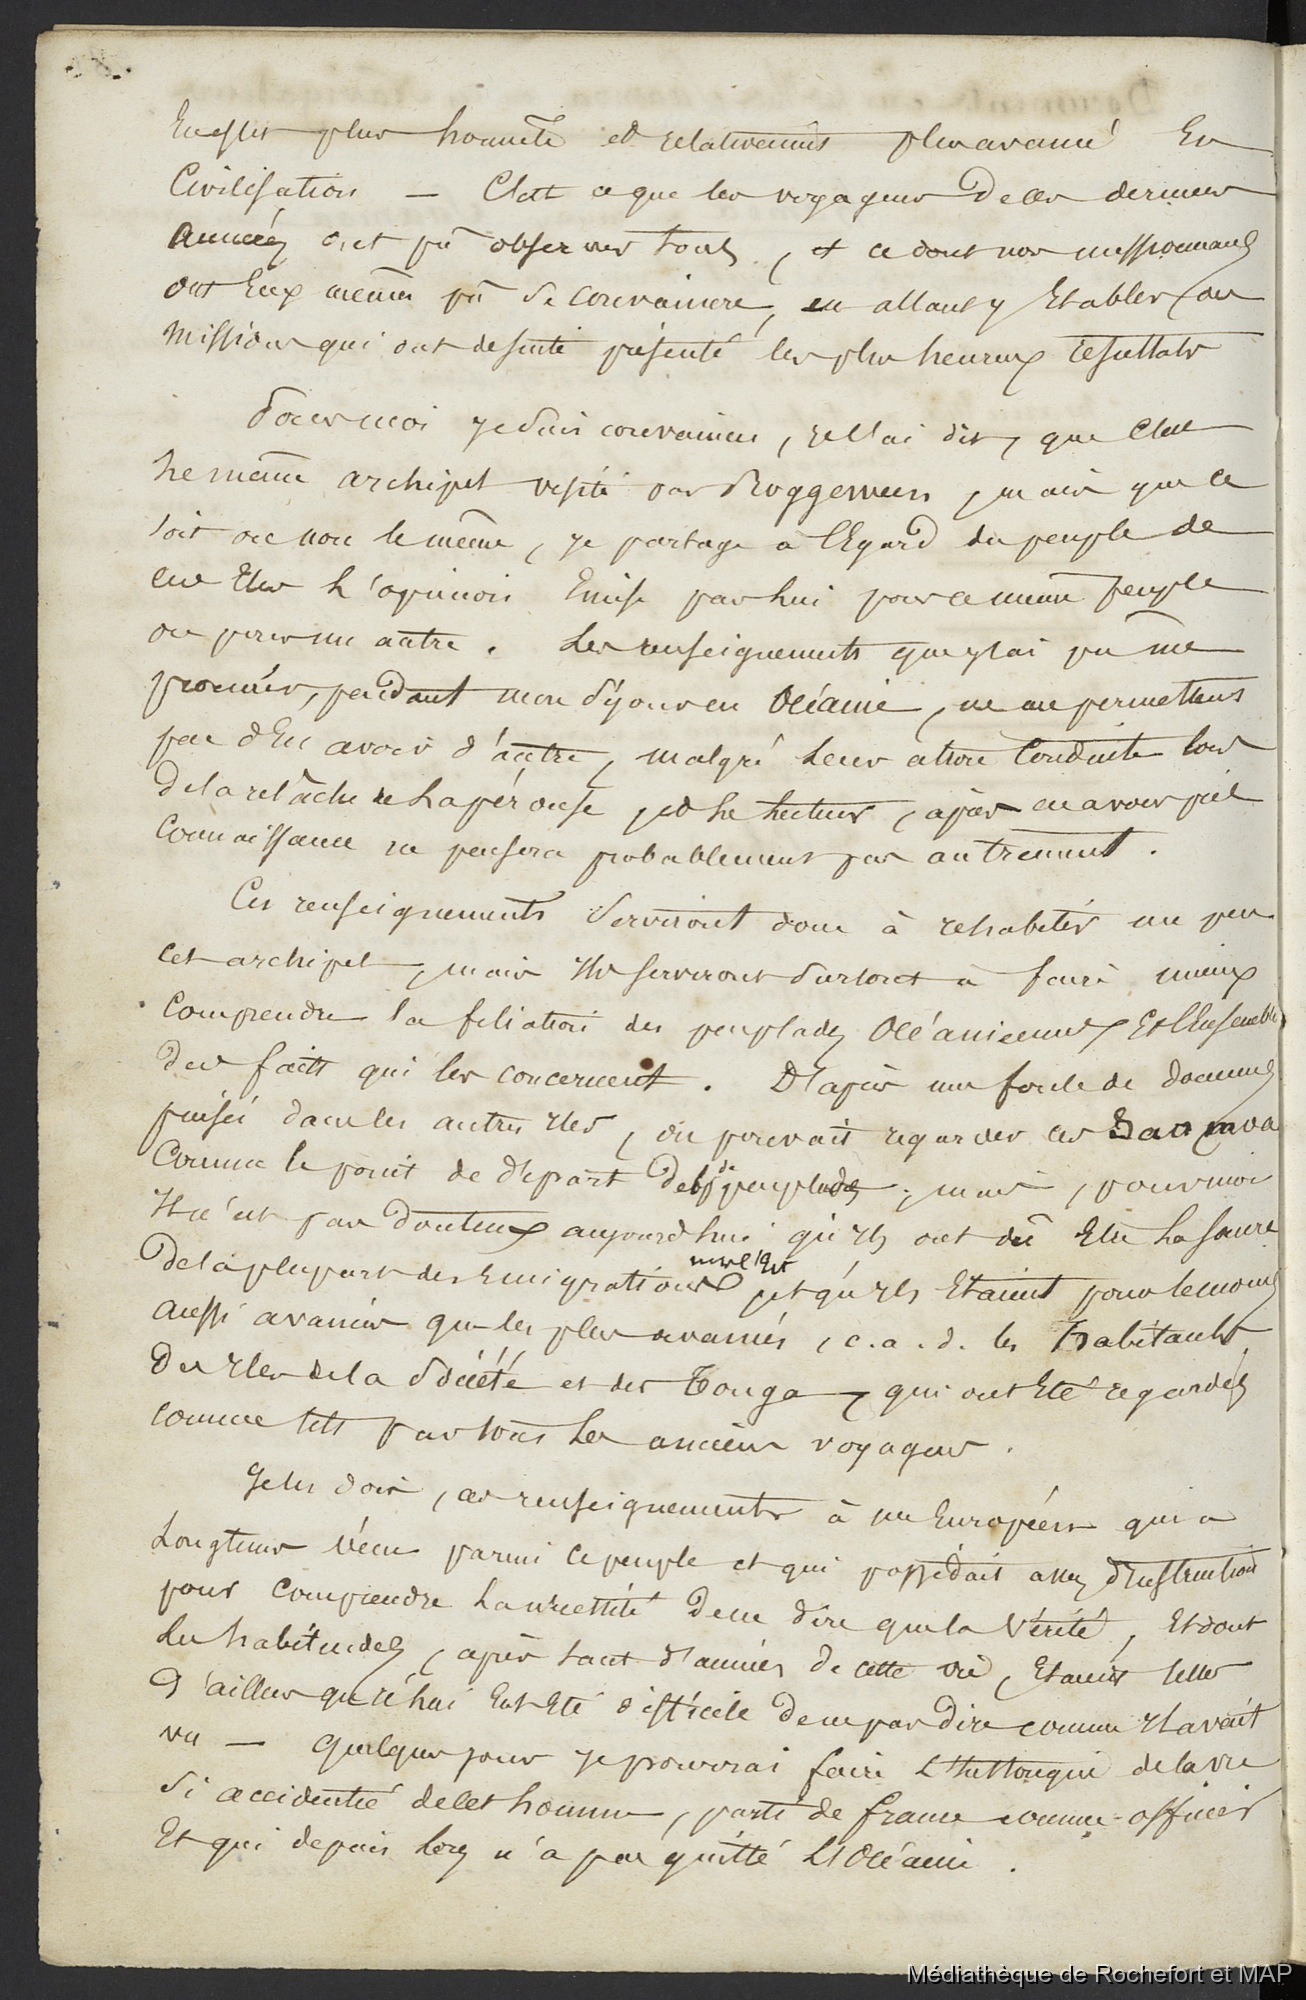 En effet plus honnête et relativement plus avancé En
Civilisation — C'est ce que les voyageurs de ces dernieres
années ont pû observer tous, et ce dont nos missionnaires
ont Eux mêmes pû se convaincre, en allant y Etablir des
Missions qui ont de suite présenté les plus heureux résultats
Pour moi je suis convaincu, je l'ai dit, que C'est
Le même archipel visité par Roggeween, mais que ce
soit ou non le même, je partage à l'Egard du peuple de
ces Iles L'opinion Emise par lui pour ce même peuple
ou pour un autre. Les renseignements que j'ai pu me
procurer, pendant mon séjour en Océanie, ne me permettent
pas d'En avoir d'autre, malgré leur atroce Conduite lors
de la relâche de Lapérouse, et Le Lecteur, après en avoir pris
Connaissance n'en pensera probablement pas autrement.
Ces renseignements serviront donc à réhabiliter un peu
cet archipel, mais Ils serviront surtout à faire mieux
Comprendre la filiation des peuplades Océaniennes, Et l'Ensemble
des faits qui les concernent. D'après une foule de données
puisées dans les autres Iles, on pouvait regarder les Samoa
Comme le point de départ de ces peuplades; mais, pour moi
Il n'est pas douteux aujourd'hui qu'Ils ont dû Etre La source
de la plupart des Emigrations vers l'Est, et qu'Ils Etaient pour le moins
aussi avancés que les plus avancés, c.a.d. les habitants
des Iles de la Société et des Tonga, qui ont Eté regardés
comme tels par tous Les anciens voyageurs.
Je les dois, ces renseignements à un Européen qui a
Longtems vécu parmi ce peuple et qui possédait assez d'Instruction
pour Comprendre La nécessité de ne dire que la Vérité, Et dont
Les habitudes, après tant d'années de cette vie, Etaient telles
D'ailleurs qu'il lui Eut Eté difficile de ne pas Dire comme Il avait
vu — Quelque jour je pourrai faire L'historique de la vie
si accidentée de cet homme, parti de France comme officier
Et qui depuis lors n'a pas quitté L'Océanie.
Médiathèque de Rochefort et MAP